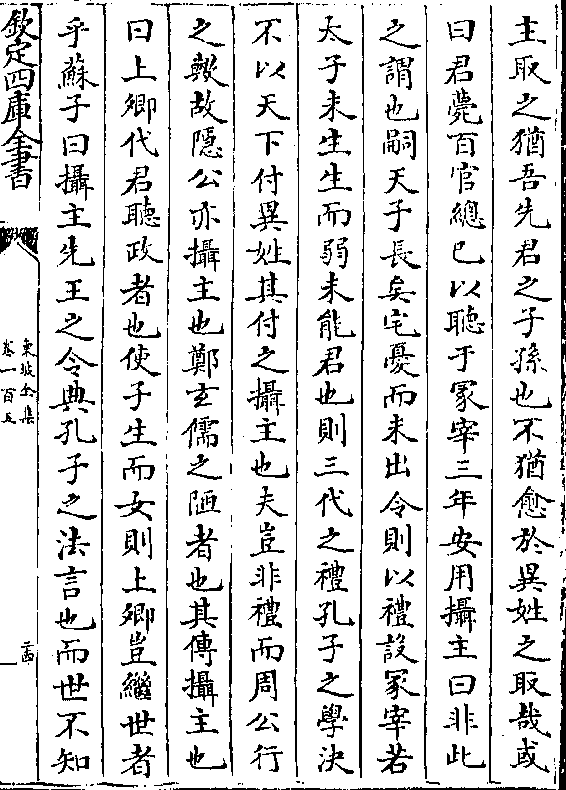 主取之猶吾先君之子孫也不猶愈於異姓之取哉或
曰君薨百官總己以聽于冢宰三年安用攝主曰非此
之謂也嗣天子長矣宅憂而未出令則以禮設冢宰若
太子未生生而弱未能君也則三代之禮孔子之學決
不以天下付異姓其付之攝主也夫豈非禮而周公行
之歟故隱公亦攝主也鄭玄儒之陋者也其傳攝主也
曰上卿代君聽政者也使子生而女則上卿豈繼世者
乎蘇子曰攝主先王之令典孔子之法言也而世不知
欽定四庫全書
東坡全集
卷一百五
二十四